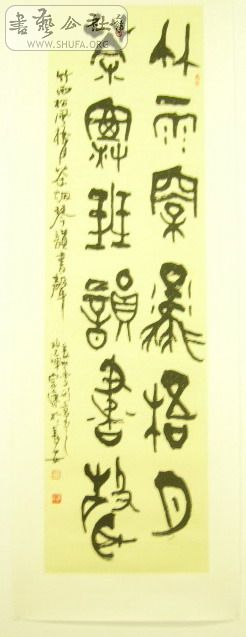 書藝公社
WWW.SHUFA.ORG
竹雨松風梧月
茶煙琴韻書聲
竹雨松風梧月茶烟琴韻書聲